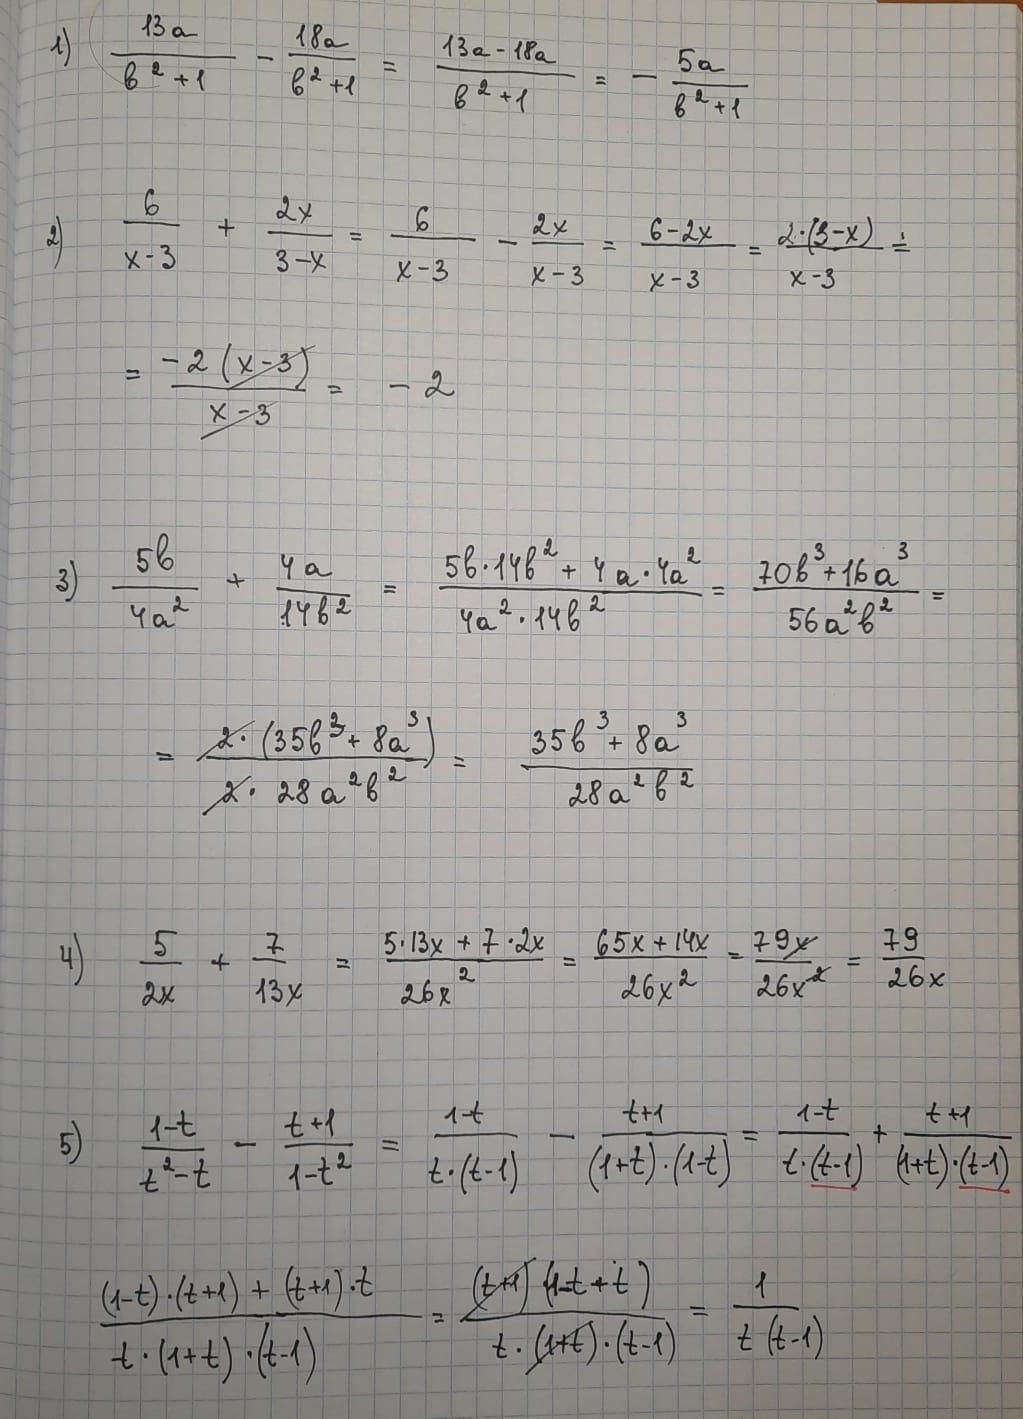 1) 13a/(b²+1) - 18a/(b²+1) = (13a-18a)/(b²+1) = - 5a/(b²+1)
2) 6/(x-3) + 2x/(3-x) = 6/(x-3) - 2x/(x-3) = (6-2x)/(x-3) = 2·(3-x)/(x-3) =
= -2(x-3)/(x-3) = -2
3) 5b/(4a²) + 4a/(14b²) = (5b·14b²+4a·4a²)/(4a²·14b²) = (70b³+16a³)/(56a²b²) =
= 2·(35b³+8a³)/(2·28a²b²) = (35b³+8a³)/(28a²b²)
4) 5/(2x) + 7/(13x) = (5·13x+7·2x)/(26x²) = (65x+14x)/(26x²) = 79x/(26x²) = 79/(26x)
5) (1-t)/(t²-t) - (t+1)/(1-t²) = (1-t)/(t·(t-1)) - (t+1)/((1+t)·(1-t)) = (1-t)/(t·(t-1)) + (t+1)/((1+t)·(t-1))
((1-t)·(t+1)+(t+1)·t)/(t·(1+t)·(t-1)) = (t+1)(1-t+t)/(t·(1+t)·(t-1)) = 1/(t(t-1))